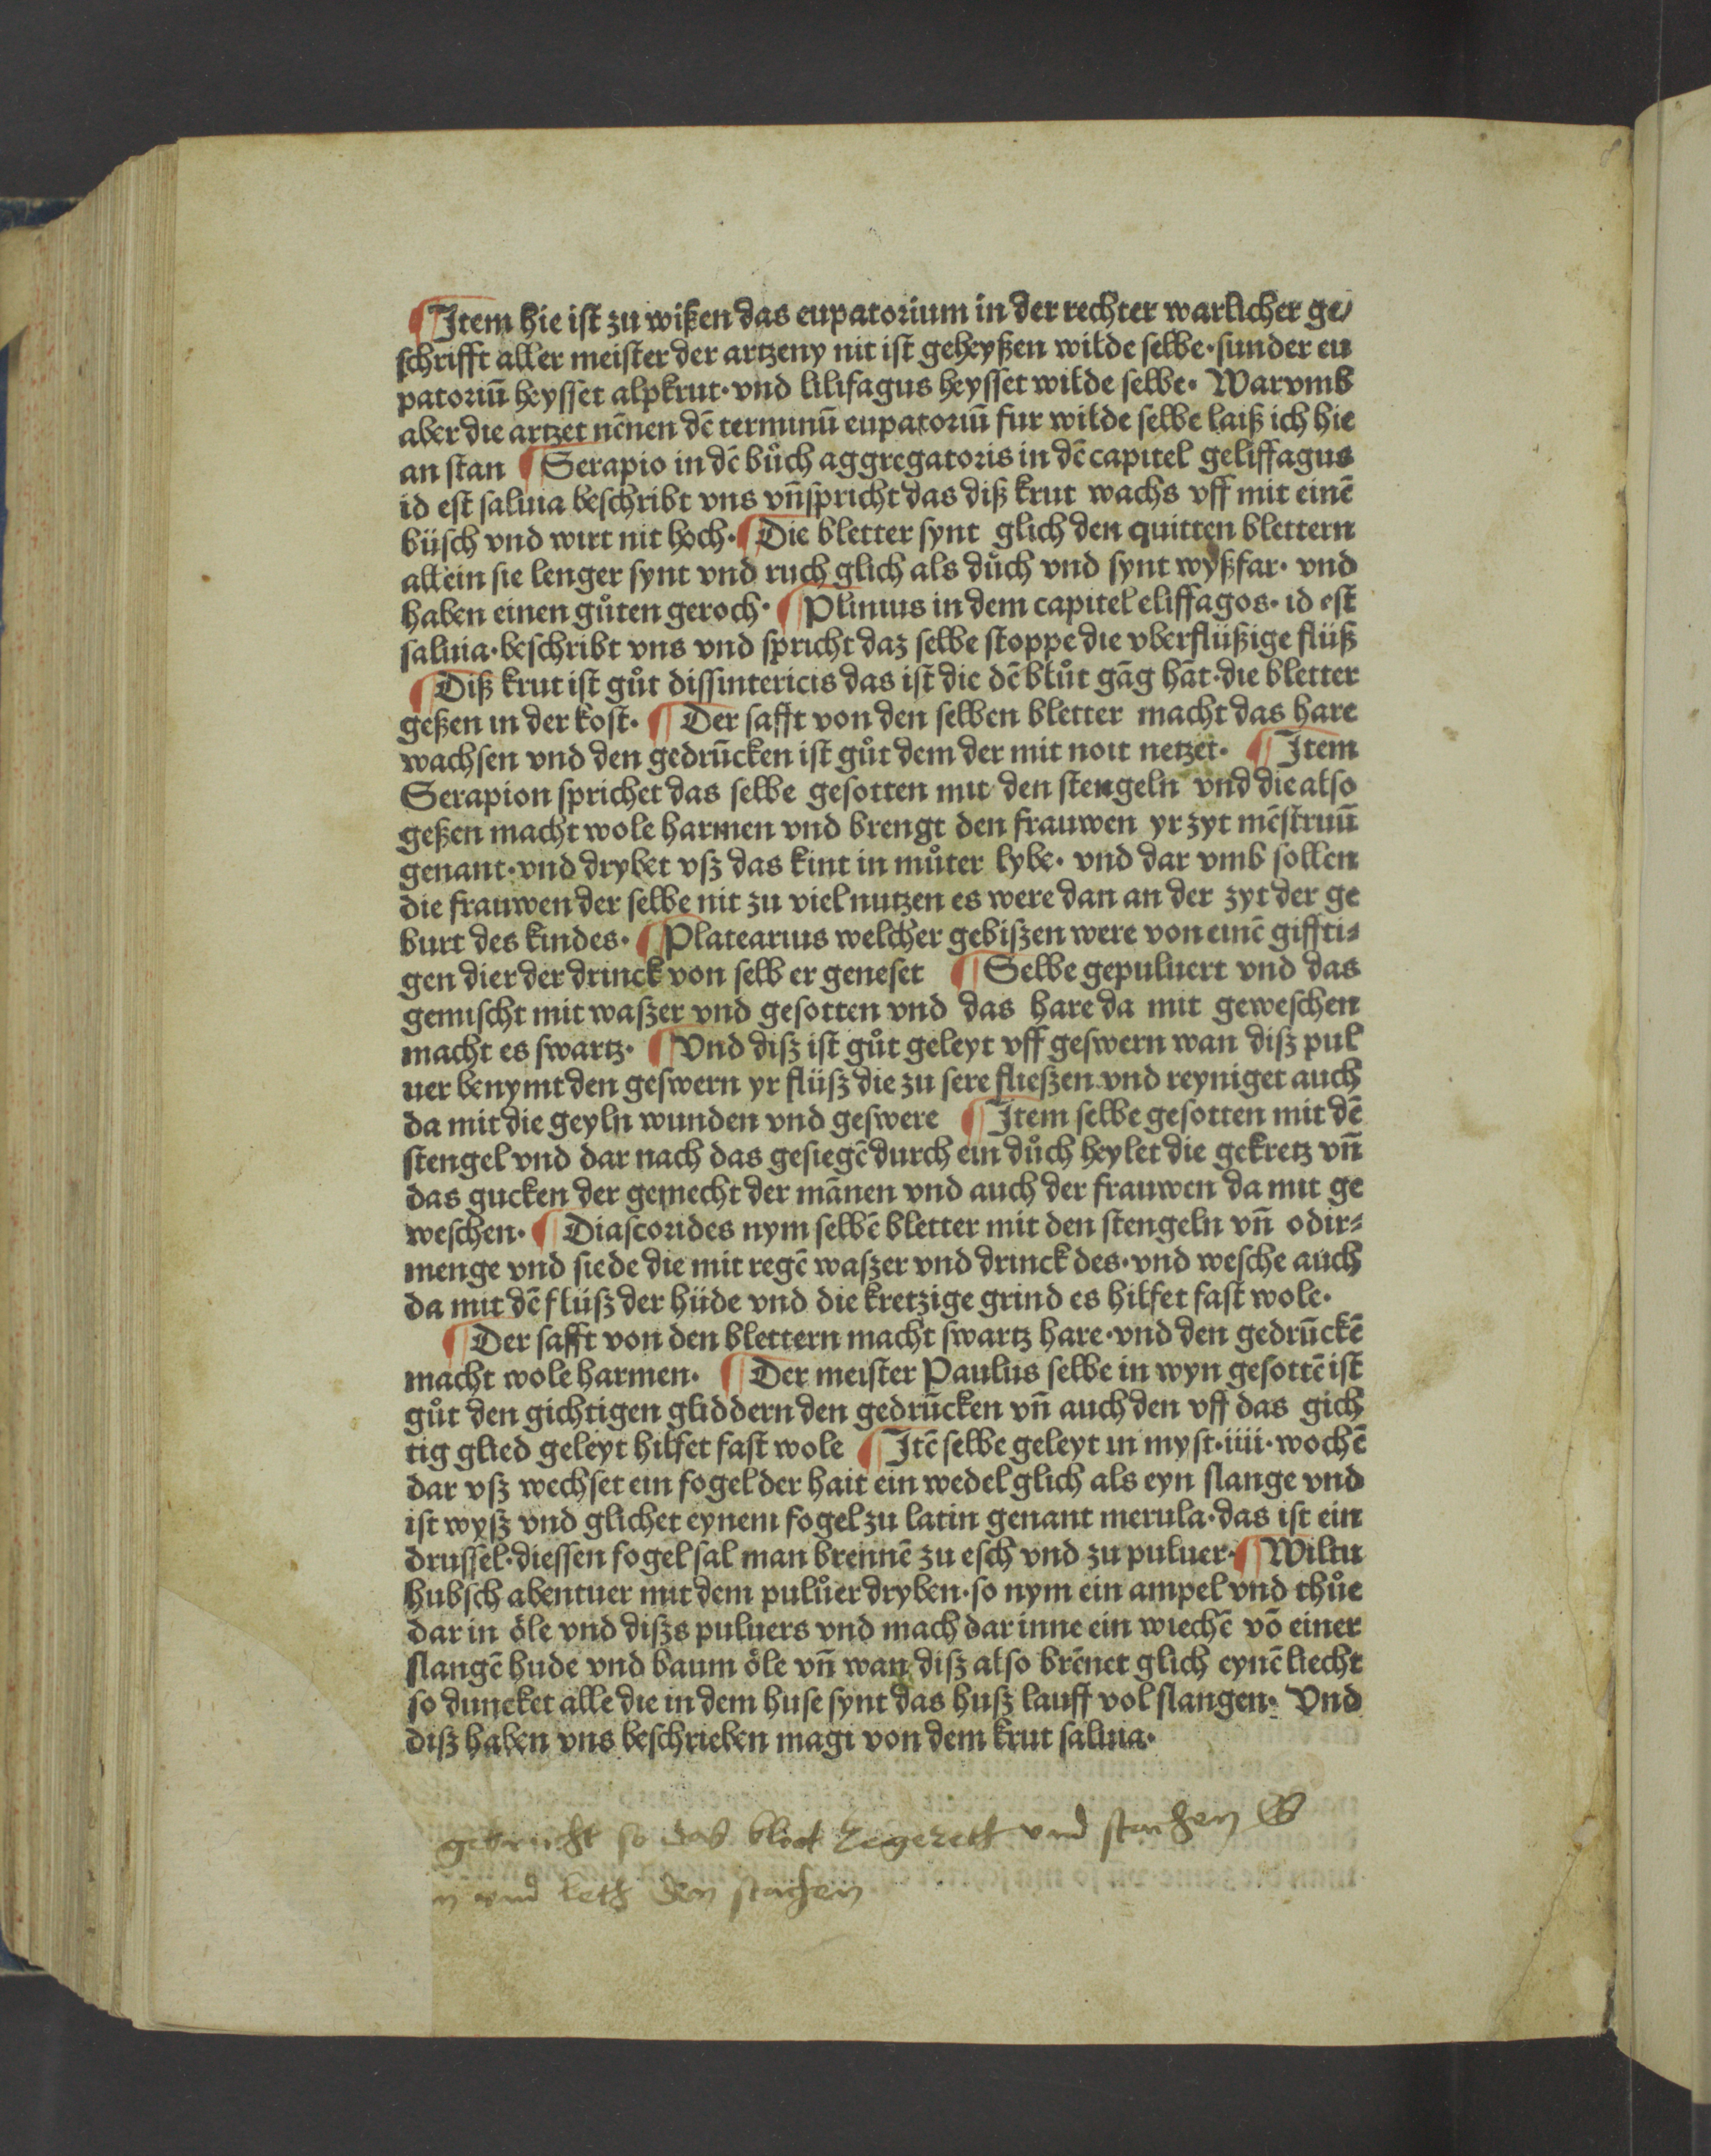 ¶Item hie ist zu wißen das eupatorium in der rechter warlicher ge/
schrifft aller meister der artzeny nit ist geheyßen wilde selbe·sunder eu
patoriū heysset alpkrut·vnd lilifagus heysset wilde selbe· Warvmb
aber die artzet nēnen dē terminū eupatoriū fur wilde selbe laiß ich hie
an stan ¶Serapio in dē bůch aggregatoris in dē capitel geliffagus
id est saluia beschribt vns vn̄ spricht das diß krut wachs vff mit einē
büsch vnd wirt nit hoch·¶Die bletter synt glich den quitten blettern
allein sie lenger synt vnd ruch glich als důch vnd synt wyßfar· vnd
haben einen gůten geroch·¶Plinius in dem capitel eliffagos· id est
saluia·beschribt vns vnd spricht daz selbe stoppe die vberflüßige flüß
¶Diß krut ist gůt dissintericis das ist die dē blůt gāg hāt·die bletter
geßen in der kost·¶Der safft von den selben bletter macht das hare
wachsen vnd den gedrūcken ist gůt dem der mit noit netzet·¶Item
Serapion sprichet das selbe gesotten mit den stengeln vnd die also
geßen macht wole harmen vnd brengt den frauwen yr zyt mēstruū
genant·vnd drybet vß das kint in můter lybe· vnd dar vmb sollen
die frauwen der selbe nit zu viel nutzen es were dan an der zyt der ge
burt des kindes·¶Platearius welcher gebißen were von einē giffti⸗
gen dier der drinck von selb er geneset ¶Selbe gepuluert vnd das
gemischt mit waßer vnd gesotten vnd das hare da mit geweschen
macht es swartz·¶Vnd diß ist gůt geleyt vff geswern wan diß pul
uer benymt den geswern yr flüß die zu sere fließen vnd reyniget auch
da mit die geyln wunden vnd geswere ¶Item selbe gesotten mit dē
stengel vnd dar nach das gesiegē durch ein důch heylet die gekretz vn̄
das gucken der gemecht der mānen vnd auch der frauwen da mit ge
weschen·¶Diascorides nym selbē bletter mit den stengeln vn̄ odir⸗
menge vnd siede die mit regē waßer vnd drinck des·vnd wesche auch
da mit dē flüß der hüde vnd die kretzige grind es hilfet fast wole·
¶Der safft von den blettern macht swartz hare·vnd den gedrūckē
macht wole harmen·¶Der meister Paulus selbe in wyn gesottē ist
gůt den gichtigen gliddern den gedrūcken vn̄ auch den vff das gich
tig glied geleyt hilfet fast wole ¶Itē selbe geleyt in myst·iiii·wochē
dar vß wechset ein fogel der hait ein wedel glich als eyn slange vnd
ist wyß vnd glichet eynem fogel zu latin genant merula·das ist ein
drussel·diessen fogel sal man brennē zu esch vnd zu puluer·¶Wiltu
hubsch abentuer mit dem pulůer dryben·so nym ein ampel vnd thůe
dar in öle vnd dißs puluers vnd mach dar inne ein wiechē vō einer
slangē hude vnd baum öle vn̄ wan diß also brēnet glich eynē liecht
so duncket alle die in dem huse synt das huß lauff vol slangen· Vnd
diß haben vns beschrieben magi von dem krut saluia·
so das blod vnd
n vnd den